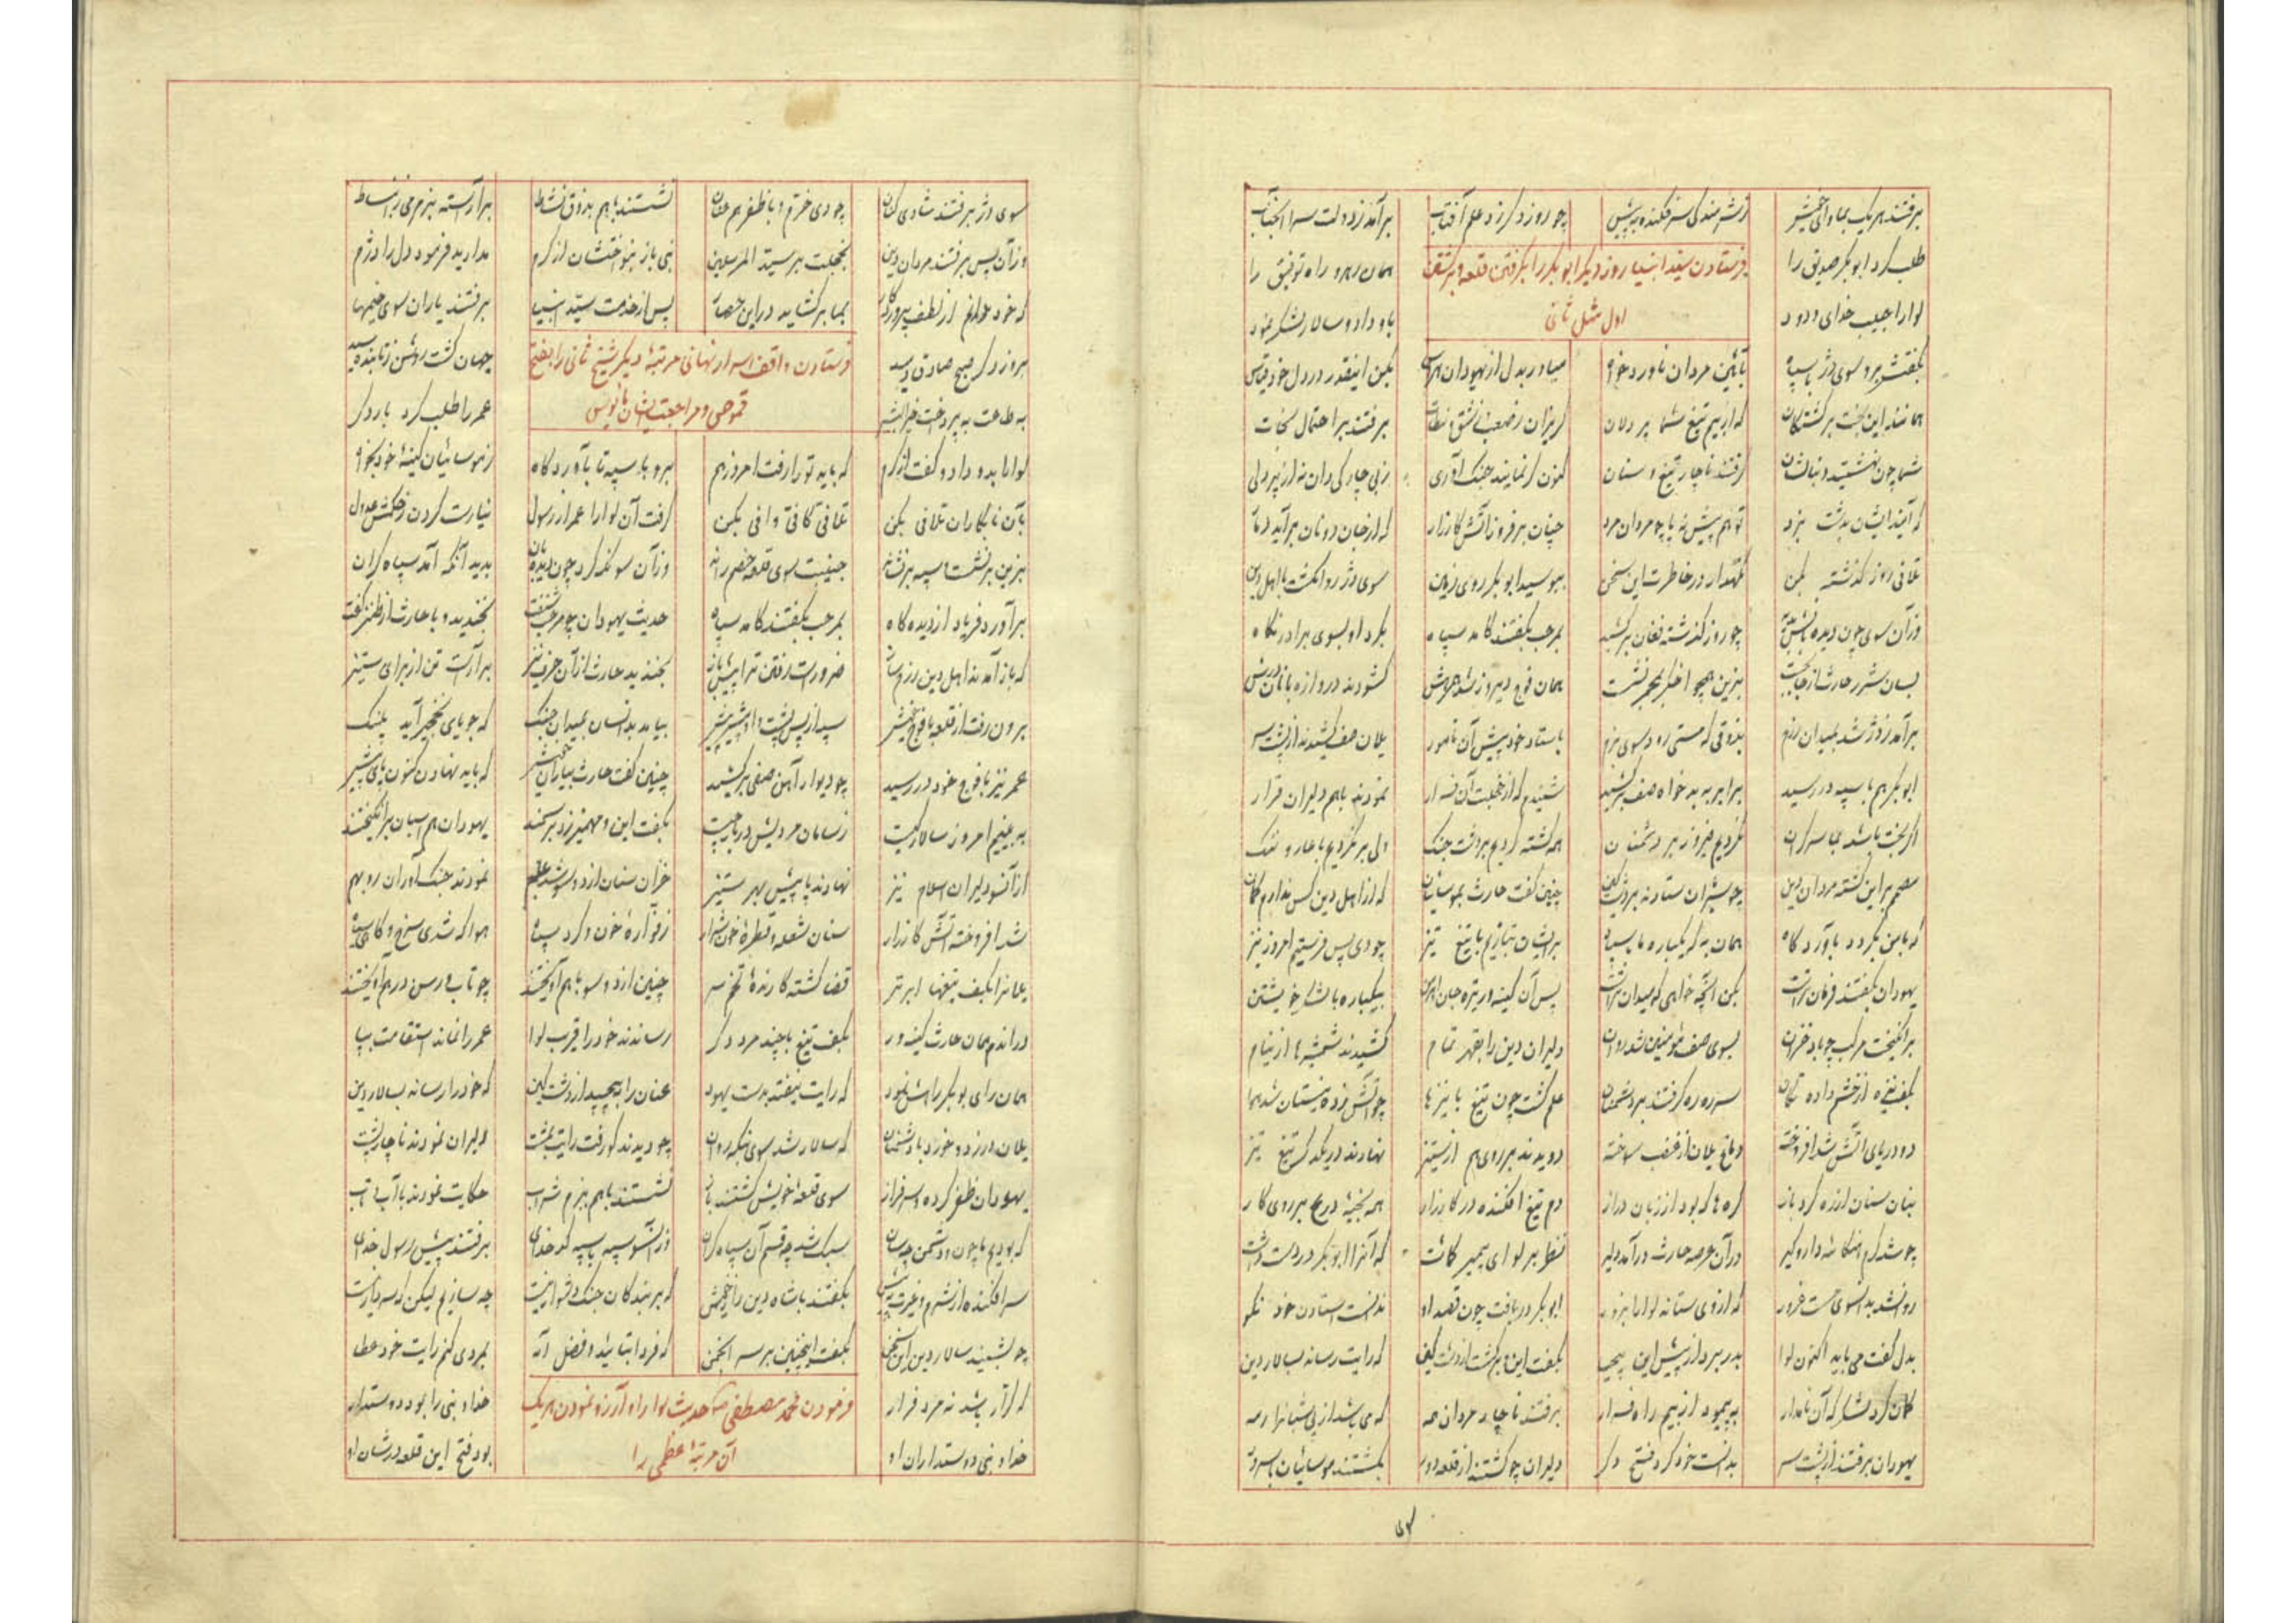 برفتند هر یک بماوای خویش ز شرمندگی سر فکنده به پیش چو روز دگر زد علم آفتاب برآمد ز دولت سرا آنجناب
طلب کرد ابوبکر صدیق را همان رهرو راه توفیق را
فرستادن سید انبیا روز دیگر ابوبکر را بگرفتن قلعه و برگشتن
لوارا حبیب خدای ودود باو داد و سالار لشکر نمود
اول مثل ثانی
بگفتش برو سوی دژ با سپاه بآئین مردان ناورد خواه میاور بدل از یهودان هراس بکن اینقدر در دل خود قیاس
همانند این بخت برگشتگان که از بیم تیغ شما پر دلان گریزان ز صعب و نطات برفتند بر احتمال نجات
شما چون نهشتید دنبالشان گرفتند ناچار تیغ و سنان کنون گر نمایند جنگ آوری ز بی چارگی دان نه از پر دلی
که آیند ایشان بدشت نبرد تو هم پیش نه پا چو مردان مرد چنان برفروز آتش کارزار که از جان دونان برآید دمار
تلافی روز گذشته بکن نگهدار در خاطرت این سخن ببوسید ابوبکر روی زمین سوی دژ روان گشت با اهل دین
وزآن سوی چون دیده بانش بدید چو روز گذشته فغان برکشید بمرحب بگفتند کامد سپاه بکرد او بسوی برادر نگاه
بسان شرر حارث از جای جست بزین همچو اخگر بمجمر نشست همان فوج دیروز شد همرهش گشودند دروازه بانان درش
برآمد ز دژ شد بمیدان رزم بذوقی که مستی رود سوی بزم باستاد خود پیش آن نامور یلان صف کشیدند از پشت سر
ابوبکر هم با سپه در رسید برابر به بدخواه صف برکشید شنیدم که از خجلت آن فرار نمودند باهم دلیران قرار
اگر بخت باشد بما سرگران نگردیم فیروز بر دشمنان همه کشته گردیم در وقت جنگ ولی برنگردیم با عار و ننگ
مصمم بر این گشته مردان دین چو شیران ستادند بر دشت کین چنین گفت حارث بموسائیان که از اهل دین کس ندارم گمان
که با من بگردد بآوردگاه همان به که یکباره ما با سپاه بر ایشان بتازیم با تیغ تیز چو دی پس فرستیم امروز نیز
یهودان بگفتند فرمان تراست بکن آنچه خواهی که میدان تراست پس آن کینه ور تیره جان اهرمن بیکباره با لشکر خویشتن
برانگیخت مرکب چو باد خزان بسوی صف مؤمنین شد روان دلیران دین را بقهر تمام کشیدند شمشیرها از نیام
بکف نیزه از خشم داده تکان سر ره گرفتند بر دشمنان علم گشت چون تیغ با نیزها چو آتش زده نیستان شد هوا
دو دریای آتش شد افروخته دماغ یلان از غضب سوخته دویدند بر روی هم از ستیز نهادند در یکدگر تیغ تیز
بنان سنان از زره کرد باز گره ها که بود از زبان دراز دم تیغ افکنده در کارزار همه بخیه درع بر روی کار
چو شد گرم هنگامه دار و گیر در آن عرصه حارث درآمد دلیر نظر بر لوای پیمبر گماشت که آنرا ابوبکر در دست داشت
روان شد بدانسوی مست غرور که از وی ستاند لوا را بزور ابوبکر دریافت چون قصد او ندانست استادن خود نکو
بدل گفت می باید اکنون لوا بدر برد از پیش این بیحیا بگفت این و برگشت از دشت کین که رایت رساند بسالار دین
گمان کرد لشکر که آن نامدار بپیمود از بیم راه فرار برفتند ناچار مردان همه که می باشد از پی شبانرا رمه
یهودان برفتند از پشت سر بدانست خود کرد فتح دگر دلیران چو گشتند از قلعه دور بگشتند موسائیان با سرور
سوی دژ برفتند شادی کنان چو دی خرم و با ظفر همعنان نشستند باهم بذوق نشاط برآراسته بزم می ز انبساط
وزآن پس برفتند مردان دین بخجلت بر سید المرسلین نبی باز بنواختشان از کرم مدارید فرمود دل را دژم
که خود خواهم از لطف پروردگار بما برگشاید در این حصار پس از خدمت سید انبیا برفتند یاران سوی خیمها
بروز دگر صبح صادق دمید جهان گشت روشن ز تابنده شید
فرستادن واقف اسرار نهانی مرتبه دیگر شیخ ثانی را بفتح
به طاعت بپرداخت خیر البشر عمر را طلب کرد بار دگر
قموص و مراجعت ایشان مأیوس
لوا را بدو داد و گفت از کرم که باید تو را رفت امروز هم برو با سپه تا بآوردگاه ز موسائیان کینه خود بخواه
بآن نابکاران تلافی بکن تلافی کافی وافی بکن گرفت آن لوا را عمر از رسول نیارست کردن ز حکمش عدول
بزین برنشست و سپه برنشاند جنیبت سوی قلعه خصم راند وزآن سو نگه کرد چون دیده بان بدید آنکه آمد سپاه گران
برآورد فریاد از دیده گاه بمرحب بگفتند کامد سپاه حدیث یهودان چو مرحب شنفت بخندید و با حارث از طنز گفت
که باز آمدند اهل دین رزم ساز ضرورست رفتن ترا پیش باز بخندید حارث از آن حرف نیز برآراست تن از برای ستیز
برون رفت از قلعه با فوج خویش سپه از پس پشت و او پیش پیش بیامد بدانسان بمیدان جنگ که جویای نخچیر آید پلنگ
عمر نیز با فوج خود در رسید چو دیوار آهن صفی برکشید چنین گفت حارث بیاران خویش که باید نهادن کنون پای پیش
ببینیم امروز سالار کیست ز سامان مردیش دربار چیست بگفت این و مهمیز زد بر سمند یهودان هم اسبان برانگیختند
از آنسو دلیران اسلام نیز نهادند پا پیش بهر ستیز خزان سنان از دو سو شد علم نمودند جنگ آوران رو بهم
شد افروخته آتش کارزار سنان شعله و قطره خون شرار ز فواره خون و گرد سپاه هوا گه شدی سرخ و گاهی سیاه
یلانرا بکف تیغها ابر تر قضا گشته کارنده تخم سر چنین از دو سو باهم آویختند چو تاب رسن درهم آویختند
در اندم همان حارث کینه ور بکف تیغ با چند مرد دگر رساندند خود را قرب لوا عمر را نماند استقامت بپا
همان رای بوبکر را نمود که رایت نیفتد بدست یهود عنان را بپیچید از دشت کین که خود را رساند بسالار دین
یلان در زد و خورد با دشمنان که سالار شد سوی بنگه روان چو دیدند کو رفت رایت بمشت دلیران نمودند ناچار پشت
یهودان ظفر کرده سرفراز سوی قلعه خویش گشتند باز نشستند باهم ببزم شراب حکایت نمودند با آب و تاب
که بودیم ما چون و دشمن چه سان سبک شد چه قسم آن سپاه گران وزآنسو سپه با سپه کدخدای برفتند پیش رسول خدای
سر افکنده از شرم و غیرت بپیش بگفتند با شاه دین راز خویش که بر بندگان جنگ دشوار نیست چه سازیم لیکن که سردار نیست
چو بشنید سالار دین این سخن بگفت اینچنین بر سر انجمن که فردا بتایید و فضل اله بمردی کنم رایت خود عطا
که کرار باشد نه مرد فرار خدا و نبی را بود دوستدار
فرمودن محمد مصطفی حدیث لوا را و آرزو نمودن هر یک
خدا و نبی دوستداران او بود فتح این قلعه در شان او
آن مرتبه عظمی را